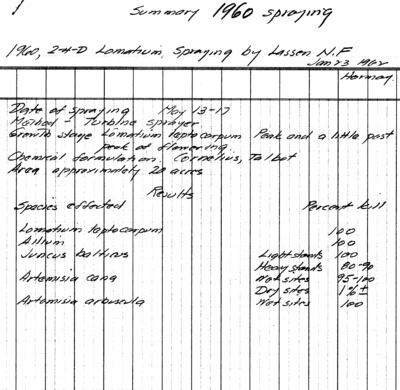 Summary 1960 spraying
1960, 2-4-D Lomatium, Spraying by Lassen N.F
Jan 23 1962
Hormay
Date of spraying May 13-17
Method - Turbine sprayer
Growth stage Lomatium leptocarpum Peak and a little past
peak of flowering.
Chemical formulation. Cornelius, Talbot
Area approximately 20 acres
Results
Species effected Percent kill
Lomatium leptocarpum 100
Allium 100
Juncus balticus Light stands 100
Heavy stands 80-90
Artemisia cana Wet sites 95-100
Dry sites 1% ±
Artemisia arbuscula Wet sites 100